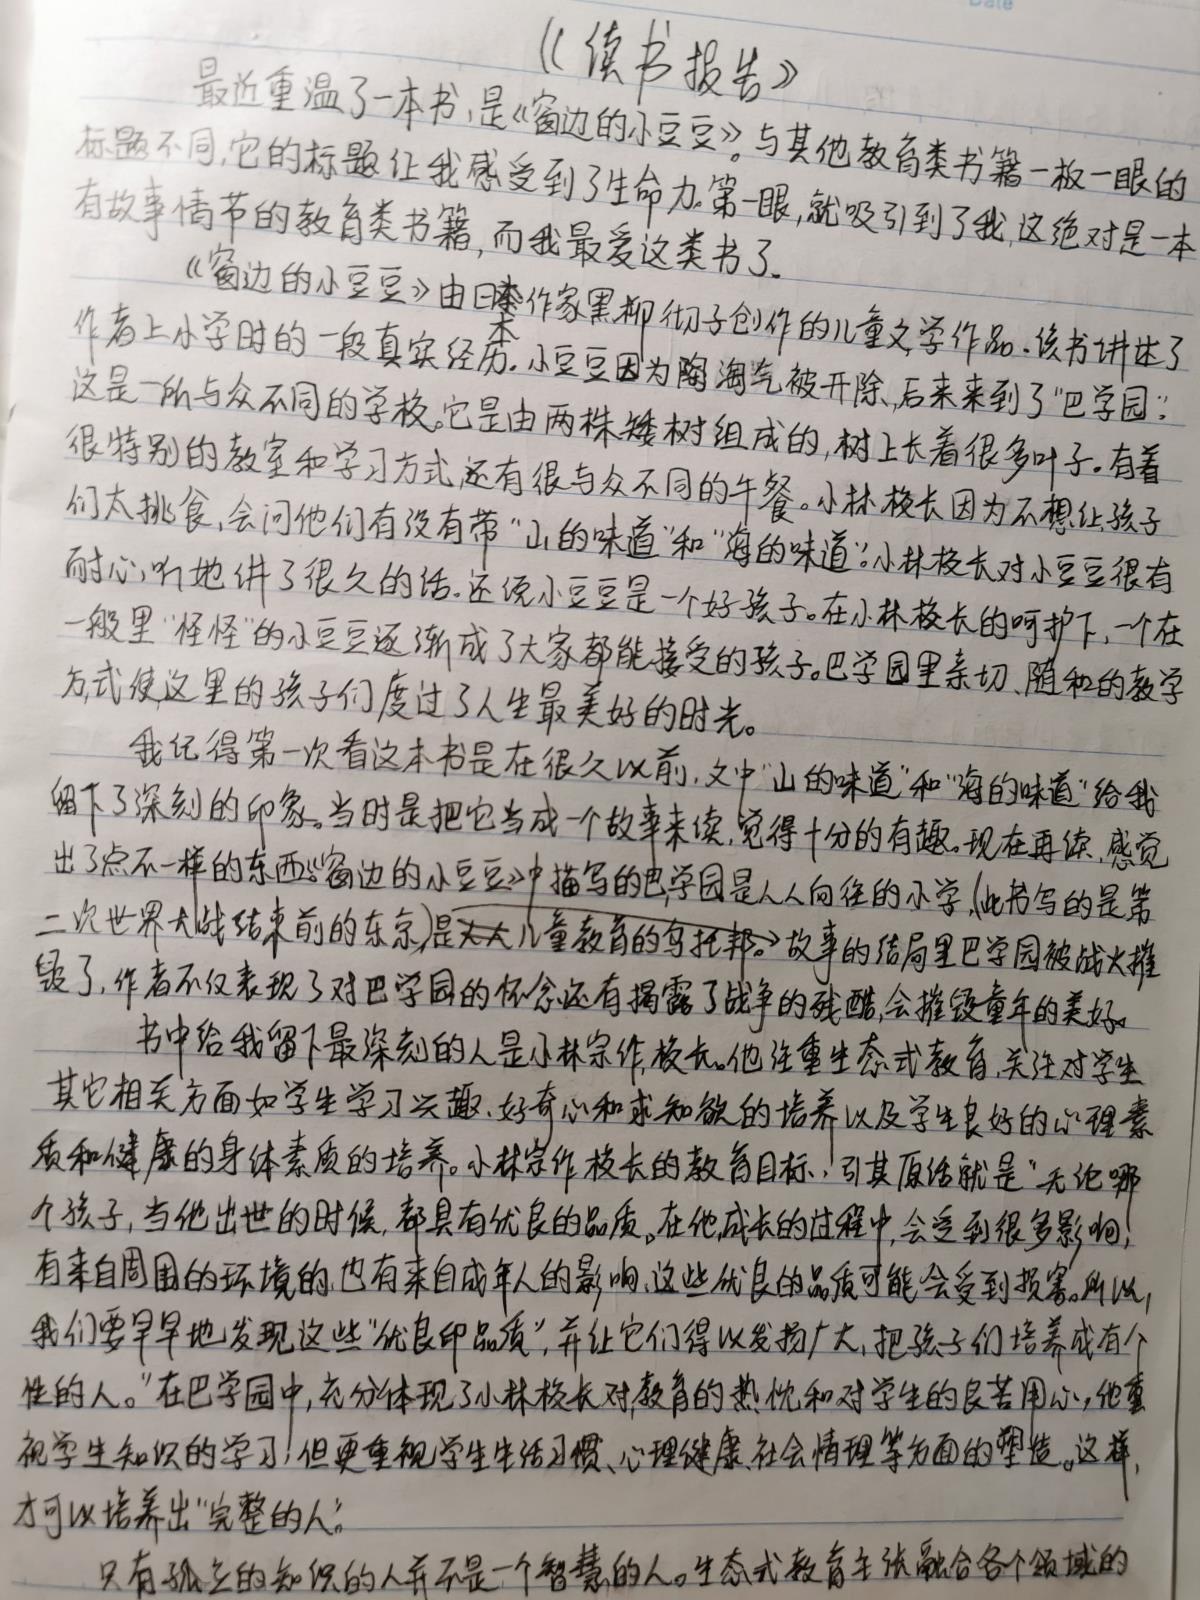 Date
《读书报告》
最近重温了一本书，是《窗边的小豆豆》。与其他教育类书籍一板一眼的
标题不同，它的标题让我感受到了生命力。第一眼，就吸引到了我，这绝对是一本
有故事情节的教育类书籍，而我最爱这类书了。
《窗边的小豆豆》由日本作家黑柳彻子创作的儿童文学作品。该书讲述了
作者上小学时的一段真实经历。小豆豆因为淘气被开除，后来来到了“巴学园”。
这是一所与众不同的学校。它是由两株矮树组成的，树上长着很多叶子。有着
很特别的教室和学习方式，还有很与众不同的午餐。小林校长因为不想让孩子
们太挑食，会问他们有没有带“山的味道”和“海的味道”。小林校长对小豆豆很有
耐心，听她讲了很久的话。还说小豆豆是一个好孩子。在小林校长的呵护下，一个在
一般里“怪怪”的小豆豆逐渐成了大家都能接受的孩子。巴学园里亲切、随和的教学
方式使这里的孩子们度过了人生最美好的时光。
我记得第一次看这本书是在很久以前，文中“山的味道”和“海的味道”给我
留下了深刻的印象。当时是把它当成一个故事来读，觉得十分的有趣。现在再读，感觉
出了点不一样的东西。《窗边的小豆豆》中描写的巴学园是人人向往的小学，（此书写的是第
二次世界大战结束前的东京）是儿童教育的乌托邦。故事的结局里巴学园被战火摧
毁了，作者不仅表现了对巴学园的怀念还有揭露了战争的残酷，会摧毁童年的美好。
书中给我留下最深刻的人是小林宗作校长。他注重生态式教育，关注对学生
其它相关方面如学生学习兴趣、好奇心和求知欲的培养以及学生良好的心理素
质和健康的身体素质的培养。小林宗作校长的教育目标，引其原话就是“无论哪
个孩子，当他出世的时候，都具有优良的品质。在他成长的过程中，会受到很多影响，
有来自周围的环境的，也有来自成年人的影响，这些优良的品质可能会受到损害。所以，
我们要早早地发现这些“优良的品质”，并让它们得以发扬广大，把孩子们培养成有个
性的人。”在巴学园中，充分体现了小林校长对教育的热忱和对学生的良苦用心，他重
视学生知识的学习，但更重视学生生活习惯、心理健康、社会情理等方面的塑造。这样，
才可以培养出“完整的人”。
只有孤立的知识的人并不是一个智慧的人。生态式教育主张融合各个领域的